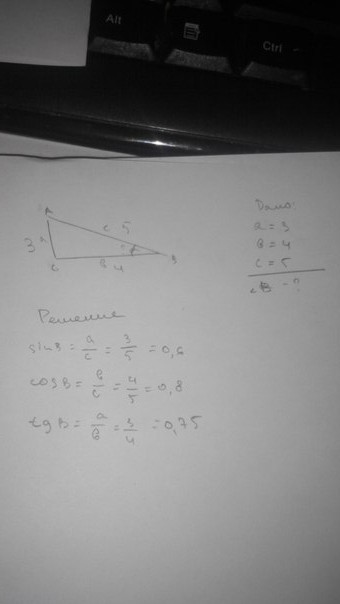 Alt
Ctrl
A
c 5
3 a
C
в 4
B
Дано:
a = 3
в = 4
c = 5
∠B - ?
Решение
sinB = a/c = 3/5 = 0,6
cosB = в/c = 4/5 = 0,8
tgB = a/в = 3/4 = 0,75